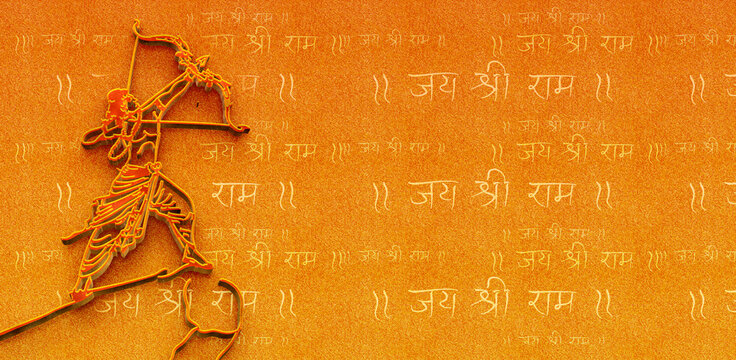 जय श्री राम जय श्री राम
जय श्री राम ।। ।। जय श्री राम ।। जय श्री राम ।। ।। जय श्री
।। जय श्री राम ।। ।। जय श्री राम ।। ।। जय
जय श्री राम जय श्री राम
जय श्री राम ।। ।। जय श्री राम ।। जय श्री राम ।। ।। जय श्री
।। राम ।। ।। जय श्री राम ।। ।। जय
जय श्री राम जय श्री राम
जय श्री राम ।। ।। जय श्री राम ।। जय श्री राम ।। ।। जय श्री
।। जय राम ।। ।। जय श्री राम ।। ।। जय
जय श्री राम जय श्री राम